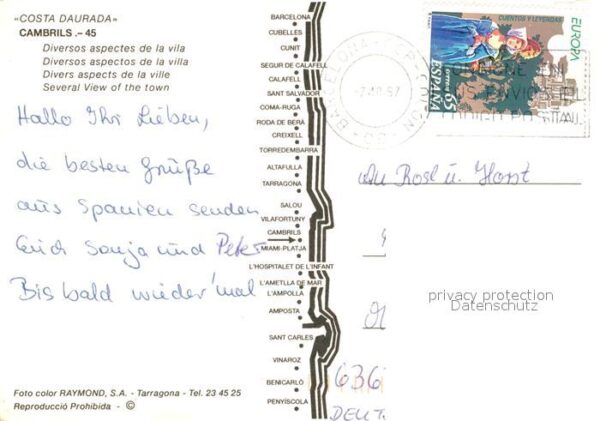 «COSTA DAURADA»
CAMBRILS .- 45
Diversos aspectes de la vila
Diversos aspectos de la villa
Divers aspects de la ville
Several View of the town
Hallo Ihr Lieben,
die besten Grüße
aus Spanien senden
Euch Sonja und Peter
Bis bald wieder 'mal
Foto color RAYMOND, S.A. - Tarragona - Tel. 23 45 25
Reproducció Prohibida - ©
BARCELONA
CUBELLES
CUNIT
SEGUR DE CALAFELL
CALAFELL
SANT SALVADOR
COMA-RUGA
RODA DE BERÀ
CREIXELL
TORREDEMBARRA
ALTAFULLA
TARRAGONA
SALOU
VILAFORTUNY
CAMBRILS
MIAMI-PLATJA
L'HOSPITALET DE L'INFANT
L'AMETLLA DE MAR
L'AMPOLLA
AMPOSTA
SANT CARLES
VINAROZ
BENICARLÓ
PENYÍSCOLA
BARCELONA
CUENTOS Y LEYENDAS
EUROPA
ESPAÑA
65
An Rosl u. Horst
privacy protection
Datenschutz
636